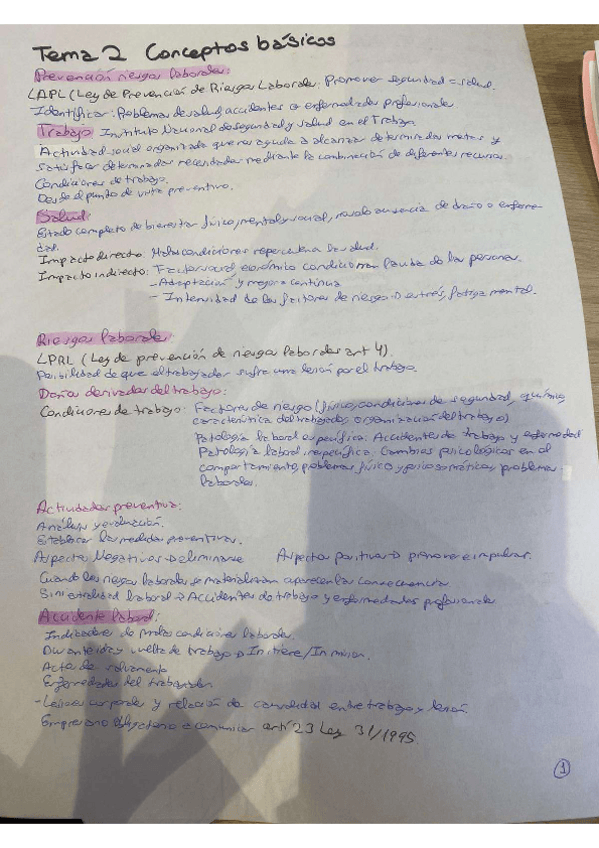 Tema 2 Conceptos básicos
Prevención riesgos laborales:
LAPL (Ley de Prevención de Riesgos Laborales: Promover seguridad = salud.
Identificar: Problemas de salud, accidentes o enfermedades profesionales
Trabajo: Instituto Nacional de seguridad y salud en el Trabajo.
Actividad social organizada que nos ayuda a alcanzar determinadas metas y
satisfacer determinadas necesidades mediante la combinación de diferentes recursos.
Condiciones de trabajo.
Desde el punto de vista preventivo.
Salud:
Estado completo de bienestar físico, mental y social, no solo ausencia de daño o enferme
dad.
Impacto directo: Malas condiciones repercuten en la salud.
Impacto indirecto: Factor social, económico condicionan la vida de las personas.
- Adaptación y mejora continua
- Intensidad de los factores de riesgo → estrés, fatiga mental.
Riesgos laborales:
LPRL (Ley de prevención de riesgos laborales art 4).
Posibilidad de que el trabajador sufra una lesión por el trabajo.
Daños derivados del trabajo:
Condiciones de trabajo: Factores de riesgo (físico, condiciones de seguridad, químico,
característica del trabajador, organización del trabajo)
Patología laboral específica: Accidentes de trabajo y enfermedad
Patología laboral inespecífica: Cambios psicológicos en el
comportamiento, problemas físico y psicosomáticos, problemas
laborales.
Actividades preventiva:
Análisis y evaluación.
Establecer las medidas preventivas.
Aspectos Negativos → eliminarse Aspectos positivos → promover e impulsar.
Cuando los riesgos laborales se materializan aparecen las consecuencias
Siniestralidad laboral → Accidentes de trabajo y enfermedades profesionales
Accidente laboral:
Indicadores de malas condiciones laborales.
Durante ida y vuelta de trabajo → In itinere/In mision.
Acto de salvamento
Enfermedades del trabajador.
- Lesiones corporales y relación de causalidad entre trabajo y lesión.
Empresario obligatorio comunicar artí 23 Ley 31/1995.
1